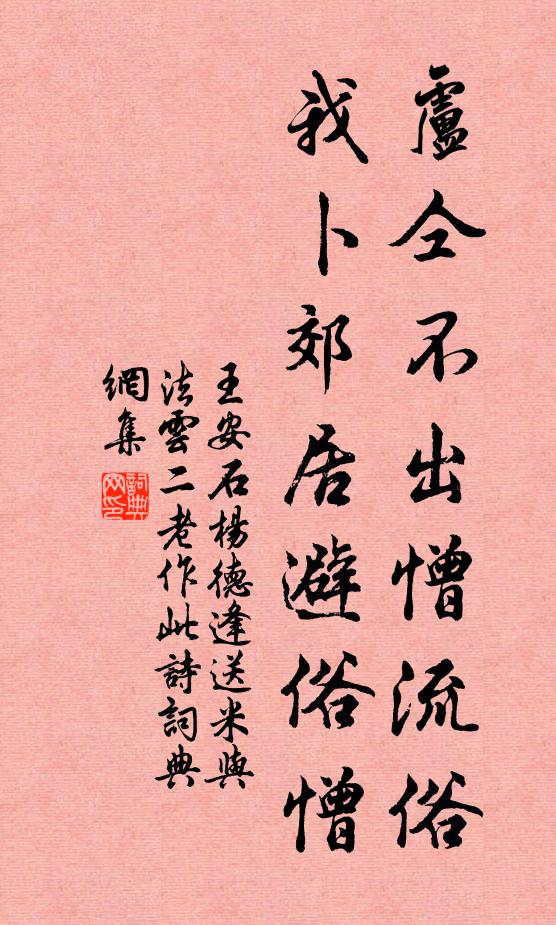 盧仝不出憎流俗
我卜郊居避俗憎
王安石楊德逢送米與
法雲二老作此詩詞典
網集
詞典
网印